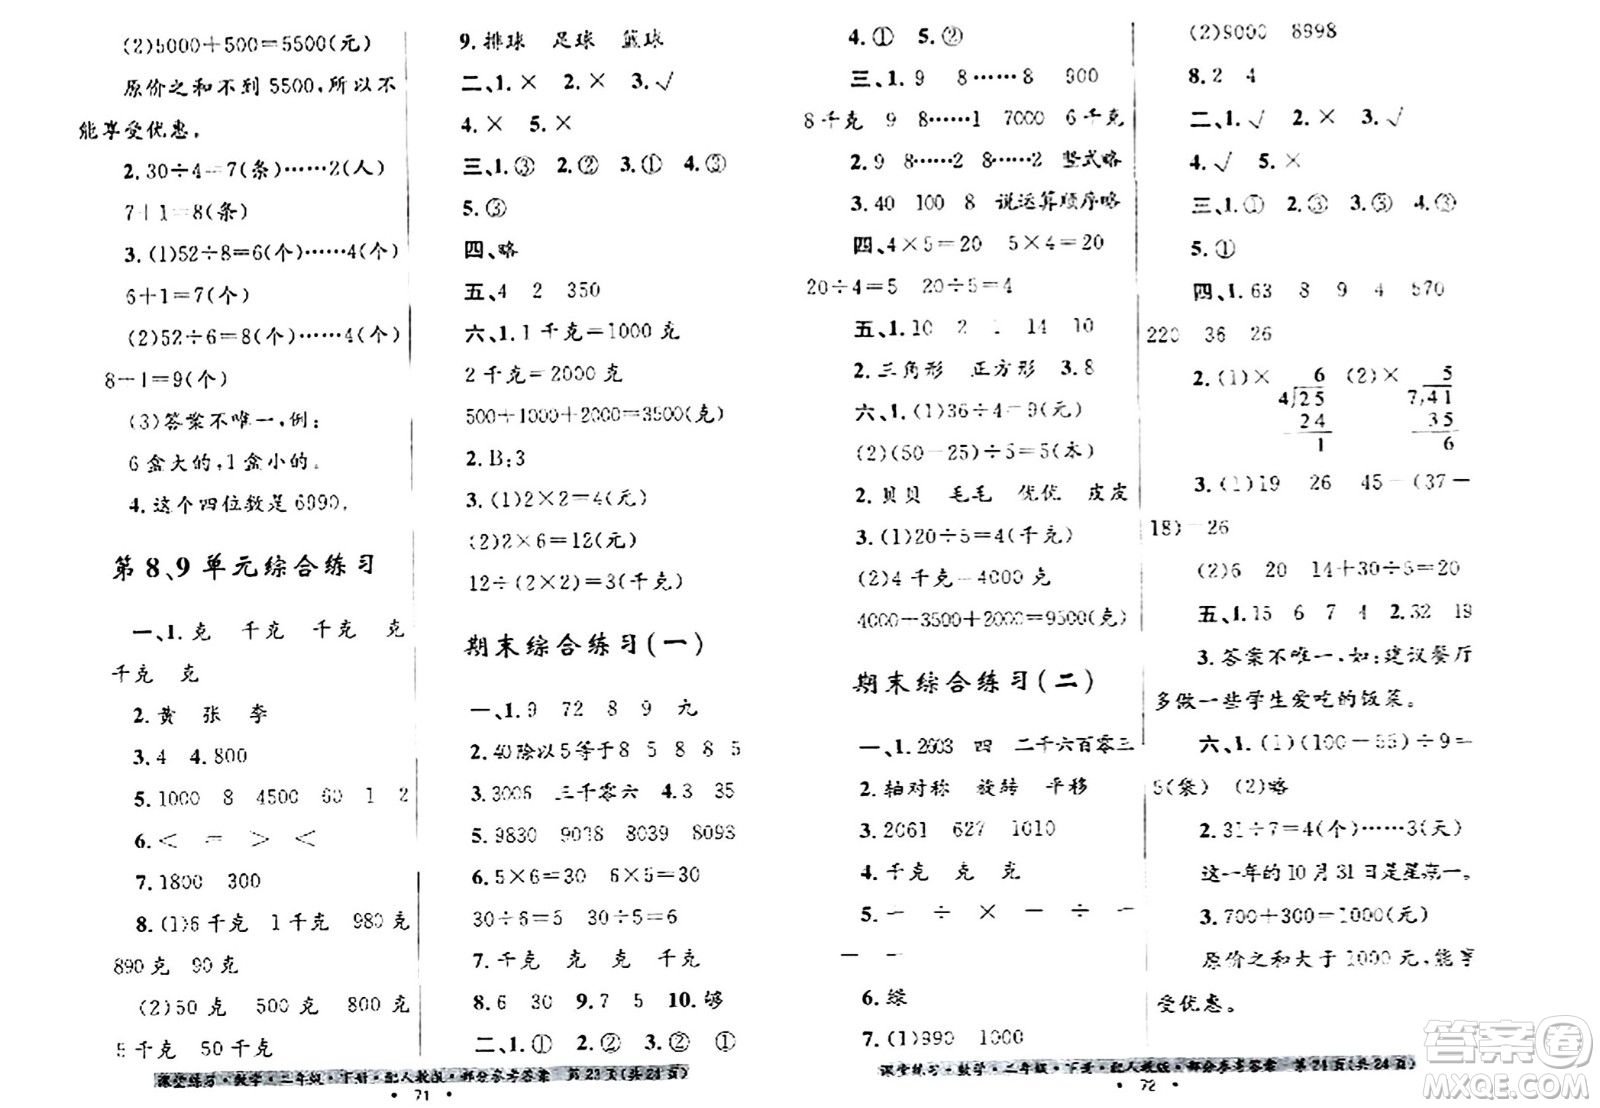 (2)5000+500=5500(元)
原价之和不到5500,所以不
能享受优惠。
2.30÷4=7(条)……2(人)
7+1=8(条)
3.(1)52÷8=6(个)……4(个)
6+1=7(个)
(2)52÷6=8(个)……4(个)
8+1=9(个)
(3)答案不唯一,例:
6盒大的,1盒小的。
4.这个四位数是6990。
第8、9单元综合练习
一、1.克 千克 千克 克
千克 克
2.黄 张 李
3.4 4.800
5.1000 8 4500 60 1 2
6.< = > <
7.1800 300
8.(1)6千克 1千克 980克
890克 90克
(2)50克 500克 800克
5千克 50千克
课堂练习·数学·二年级·下册·配人教版·部分参考答案 第23页(共24页)
·71·
9.排球 足球 篮球
二、1.× 2.× 3.√
4.× 5.×
三、1.③ 2.② 3.① 4.②
5.③
四、略
五、4 2 350
六、1.1千克=1000克
2千克=2000克
500+1000+2000=3500(克)
2.B:3
3.(1)2×2=4(元)
(2)2×6=12(元)
12÷(2×2)=3(千克)
期末综合练习(一)
一、1.9 72 8 9 九
2.40除以5等于8 5 8 8 5
3.3006 三千零六 4.3 35
5.9830 9038 8039 8093
6.5×6=30 6×5=30
30÷6=5 30÷5=6
7.千克 克 克 千克
8.6 30 9.7 5 10.够
二、1.① 2.② 3.② 4.①
4.① 5.②
三、1.9 8……8 900
8千克 9 8……1 7000 6千克
2.9 8……2 8……2 竖式略
3.40 100 8 说运算顺序略
四、4×5=20 5×4=20
20÷4=5 20÷5=4
五、1.10 2 1 14 10
2.三角形 正方形 3.8
六、1.(1)36÷4=9(元)
(2)(50-25)÷5=5(本)
2.贝贝 毛毛 优优 皮皮
3.(1)20÷5=4(千克)
(2)4千克=4000克
4000+3500+2000=9500(克)
期末综合练习(二)
一、1.2603 四 二千六百零三
2.轴对称 旋转 平移
3.2061 627 1010
4.千克 克 克
5.- ÷ × - ÷ -
— —
6.绿
7.(1)990 1000
课堂练习·数学·二年级·下册·配人教版·部分参考答案 第24页(共24页)
·72·
(2)9000 8998
8.2 4
二、1.√ 2.× 3.√
4.√ 5.×
三、1.① 2.③ 3.③ 4.③
5.①
四、1.63 8 9 4 570
220 36 26
2.(1)× 6 (2)× 5
4 25 7 41
24 35
1 6
3.(1)19 26 45-(37-
18)=26
(2)6 20 14+30÷5=20
五、1.15 6 7 4 2.32 18
3.答案不唯一,如:建议餐厅
多做一些学生爱吃的饭菜。
六、1.(1)(100-55)÷9=
5(袋) (2)略
2.31÷7=4(个)……3(天)
这一年的10月31日是星期一。
3.700+300=1000(元)
原价之和大于1000元,能享
受优惠。
答案圈
MXQE.COM